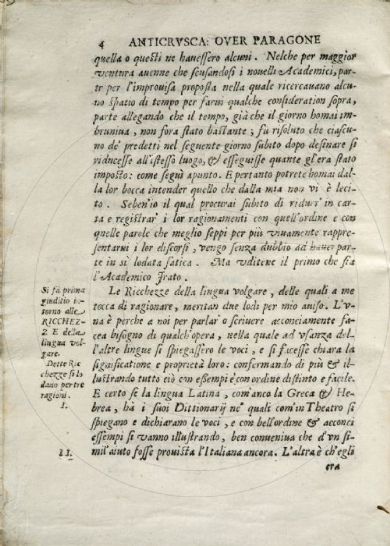 4 ANTICRVSCA: OVER PARAGONE
quella o questi ne hauessero alcuni. Nelche per maggior
ventura auenne che scusandosi i nouelli Academici, par-
te per l'improuisa proposta nella quale ricercauano alcu-
no spatio di tempo per farui qualche consideration sopra,
parte allegando che il tempo, già che il giorno homai im-
bruniua, non fora stato bastante, fu risoluto che ciascu-
no de' predetti nel seguente giorno subito dopo desinare si
riducesse all'istesso luogo, & esseguisse quante gl'era stato
imposto: come seguì apunto. E pertanto potrete homai dal-
la lor bocca intender quello che dalla mia non vi è leci-
to. Seben'io il qual procurai subito di ridur' in car-
ta e registrar' i lor ragionamenti con quell'ordine e con
quelle parole che meglio seppi per più viuamente rappre-
sentarui i lor discorsi, vengo senza dubbio ad hauer par-
te in sì lodata satica. Ma vditene il primo che sia
l'Academico Irato.
Si fà prima
giuditio in-
torno alle
RICCHEZ-
ZE della
lingua vol-
gare.
Dette Ric
chezze si lo
dano per tre
ragioni.
I.
II.
Le Ricchezze della lingua volgare, delle quali a me
tocca di ragionare, meritan due lodi per mio auiso. L'v-
na è perche a noi per parlar' o scriuere acconciamente fa-
cea bisogno di qualch'opera, nella quale ad vsanza del-
l'altre lingue si spiegassero le voci, e si facesse chiara la
significatione e proprietà loro: confermando di più & il-
lustrando tutto ciò con essempi e con ordine distinto e facile.
E certo se la lingua Latina, com'anco la Greca & He-
brea, hà i suoi Dittionarij ne' quali com'in Theatro si
spiegano e dichiarano le voci, e con bell'ordine & acconci
essempi si vanno illustrando, ben conueniua che d'vn si-
mil'aiuto fosse prouista l'Italiana ancora. L'altra è ch'egli
era